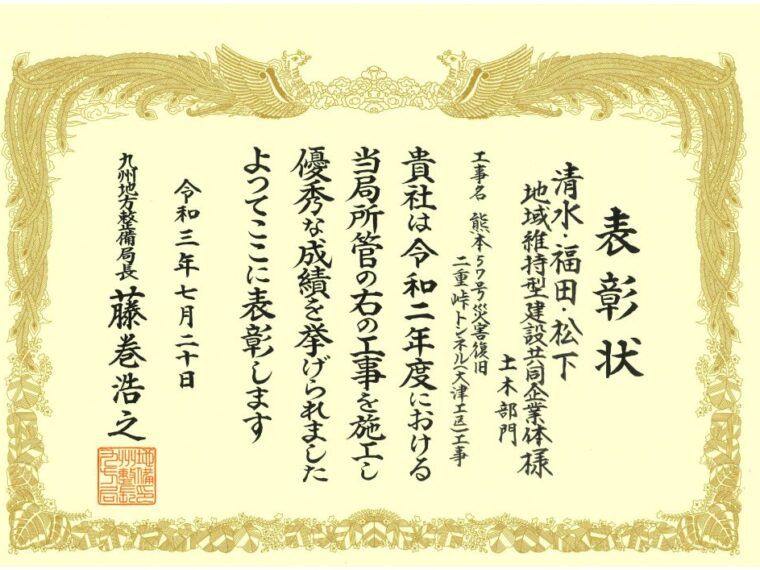 表彰状
清水・福田・松下
地域維持型建設共同企業体様
土木部門
工事名 熊本57号災害復旧
二重峠トンネル(大津工区)工事
貴社は令和二年度における
当局所管の右の工事を施工し
優秀な成績を挙げられました
よってここに表彰します
令和三年七月二十日
九州地方整備局長 藤巻浩之